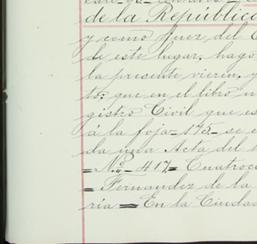 de la República
y como Juez del
de este lugar, hago
la presente vieren, y
to: que en el libro n
gistro Civil que es
á la foja 175 se e
da una Acta del
= No. 417 = Cuatroc
= Fernandez de la
ría = En la Ciudad